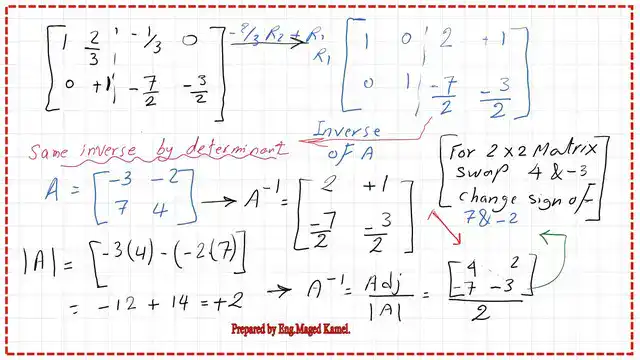 [ 1 2/3 | -1/3 0 ] -2/3 R2 + R1 [ 1 0 | 2 +1 ]
R1
[ 0 +1 | -7/2 -3/2 ] [ 0 1 | -7/2 -3/2 ]
Inverse
of A
Same inverse by determinant
[ For 2x2 Matrix
swap 4 & -3
change sign of
7 & -2 ]
A = [ -3 -2
7 4 ] → A⁻¹ = [ 2 +1
-7/2 -3/2 ]
|A| = [-3(4) - (-2(7)]
= -12 + 14 = +2 → A⁻¹ = Adj/|A| = [ 4 2
-7 -3 ] / 2
Prepared by Eng.Maged Kamel.